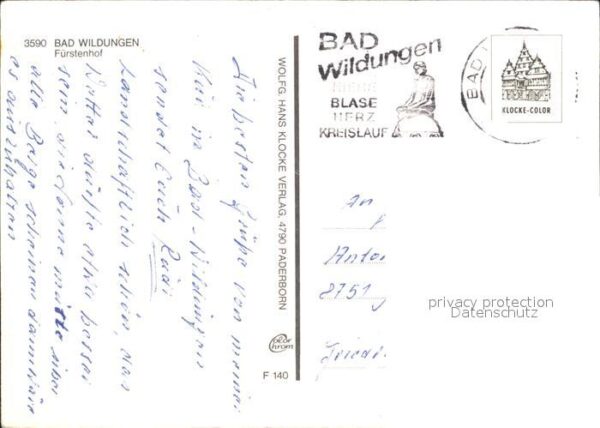 3590 BAD WILDUNGEN
Fürstenhof
Die besten Grüße von meiner
Kur in Bad-Wildungen
sendet Euch Rudi
Landschaftlich schön, das
Wetter dürfte etwas besser
sein,
alle Berge scheinen
es auszuhalten
WOLFG. HANS KLOCKE VERLAG, 4790 PADERBORN
Color
chrom
F 140
BAD
Wildungen
NIERE
BLASE
HERZ
KREISLAUF
BAD
KLOCKE-COLOR
An
Anton
8751
Friedr
privacy protection
Datenschutz